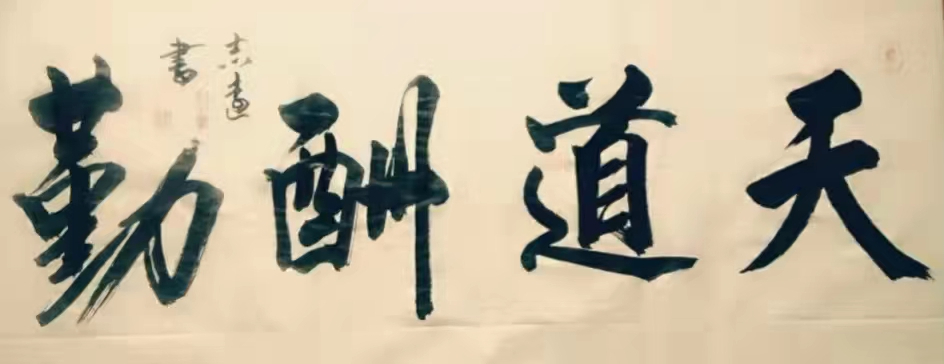 天道酬勤
志遠
書